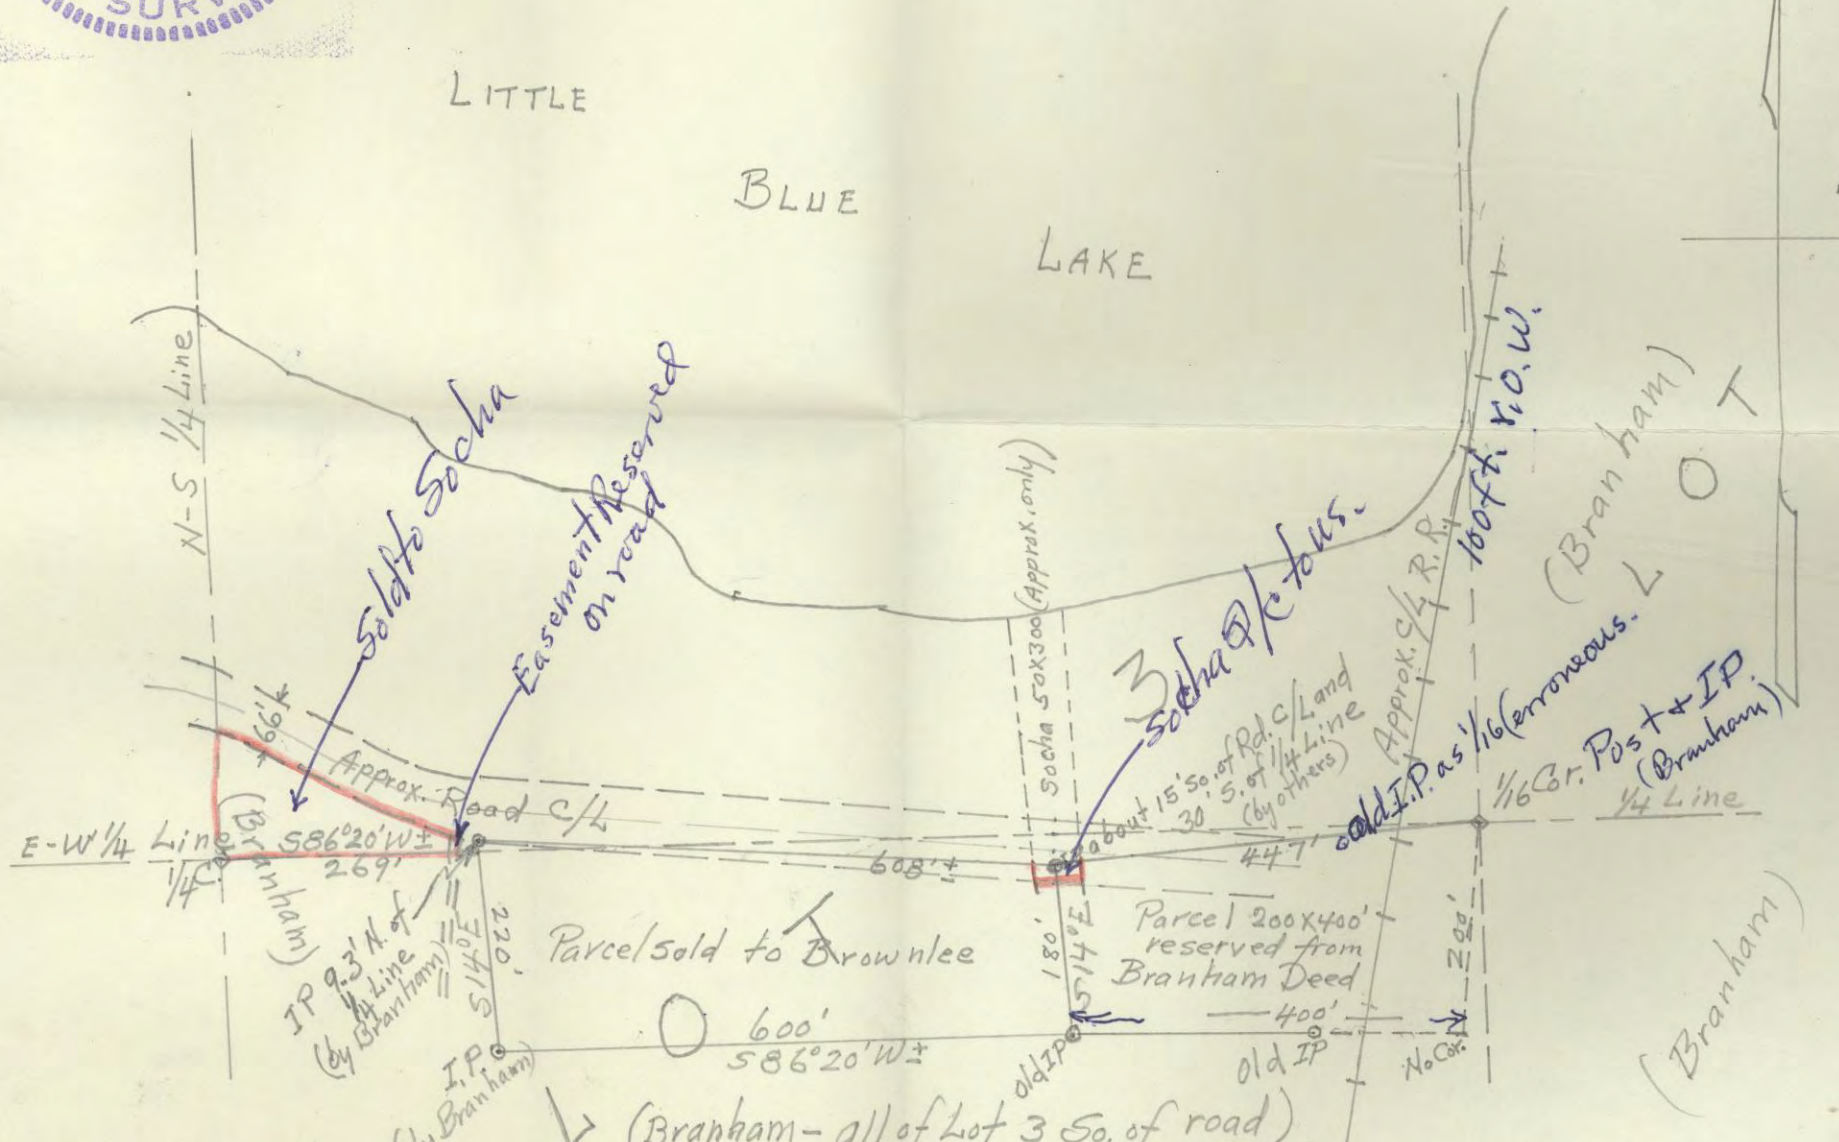 SURV
LITTLE
BLUE
LAKE
N-S 1/4 Line
Sold to Socha
Easement Reserved
on road
Socha 50x300 (Approx. only)
3
Socha Q/C to us.
Approx. C/L R.R.
100ft. r.o.w.
(Branham)
L O T
66'
Approx. Road C/L
about 15' So. of Rd. C/L and
30' S. of 1/4 Line
(by others)
old I.P. as 1/16 (erroneous.
1/16 Cor. Post & IP.
(Branham)
1/4 Line
E-W 1/4 Line
1/4 C.
S86°20'W±
269'
608'±
447'
(Branham)
IP 9.3' N. of
1/4 Line
(by Branham)
S14°E
220'
Parcel sold to Brownlee
180'
S14°E
Parcel 200x400'
reserved from
Branham Deed
200'
400'
600'
S86°20'W±
I.P.
(by Branham)
Old IP
Old IP
No Cor.
(Branham)
L O T
(Branham - all of Lot 3 So. of road)